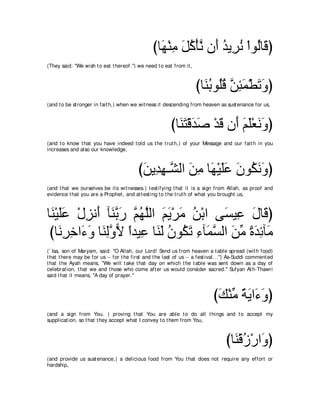 (قَالُواْ نُرِيدُ أَن نَّأْكُلَ مِنْهَا)
(They said: "We wish to eat thereof.") we need to eat from it,
(وَتَطْمَئِنَّ قُلُوبُنَا)
(and to be stronger in faith,) when we witness it descending from heaven as sustenance for us,
(وَنَعْلَمَ أَن قَدْ صَدَقْتَنَا)
(and to know that you have indeed told us the truth,) of your Message and our faith in you increases and also our knowledge,
(وَنَكُونَ عَلَيْهَا مِنَ الشَّـهِدِينَ)
(and that we ourselves be its witnesses.) testifying that it is a sign from Allah, as proof and evidence that you are a Prophet, and attesting to the truth of what you brought us,
(قَالَ عِيسَى ابْنُ مَرْيَمَ اللَّهُمَّ رَبَّنَآ أَنزِلْ عَلَيْنَا
مَآئِدَةً مِّنَ السَّمَآءِ تَكُونُ لَنَا عِيداً لاٌّوَّلِنَا وَءَاخِرِنَا)
(`Isa, son of Maryam, said: "O Allah, our Lord! Send us from heaven a table spread (with food) that there may be for us -- for the first and the last of us -- a festival...") As-Suddi commented that the Ayah means, "We will take that day on which the table was sent down as a day of celebration, that we and those who come after us would consider sacred." Sufyan Ath-Thawri said that it means, "A day of prayer."
(وَءَايَةً مِّنْكَ)
(and a sign from You. ) proving that You are able to do all things and to accept my supplication, so that they accept what I convey to them from You,
(وَارْزُقْنَا)
(and provide us sustenance,) a delicious food from You that does not require any effort or hardship,